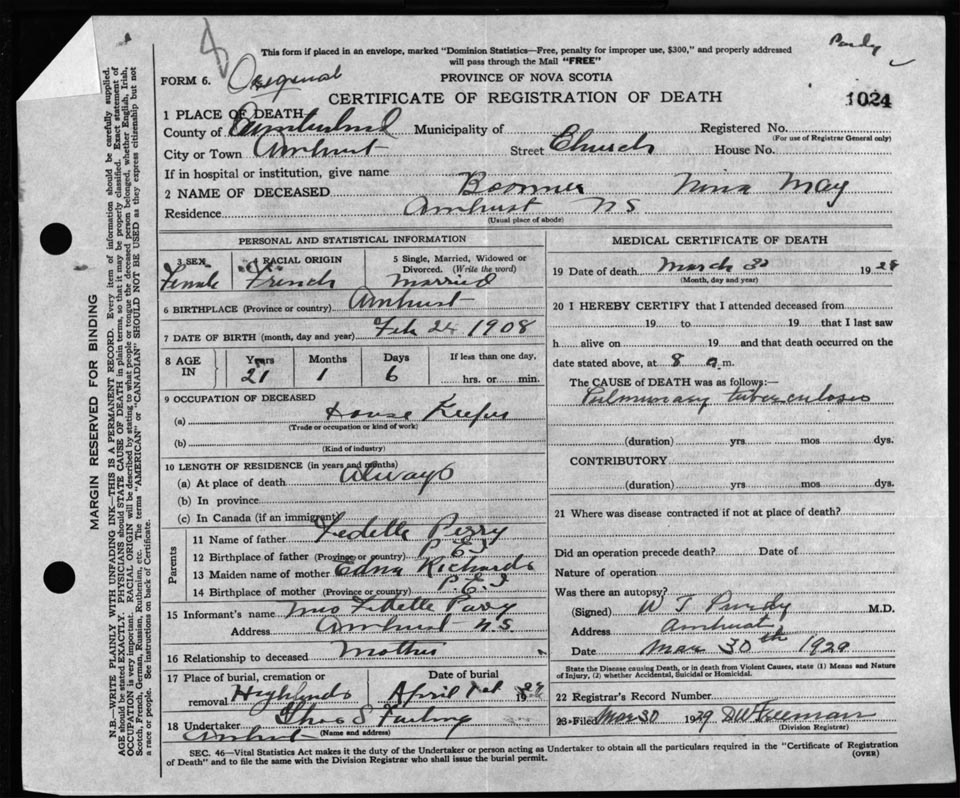 Purdy
This form if placed in an envelope, marked "Dominion Statistics—Free, penalty for improper use, $300," and properly addressed
will pass through the Mail "FREE"
FORM 6. Original
PROVINCE OF NOVA SCOTIA
CERTIFICATE OF REGISTRATION OF DEATH
1024
1 PLACE OF DEATH
County of Cumberland Municipality of Registered No.
(For use of Registrar General only)
City or Town Amherst Street Church House No.
If in hospital or institution, give name
2 NAME OF DECEASED Boomer Nina May
Residence Amherst NS
(Usual place of abode)
PERSONAL AND STATISTICAL INFORMATION
3 SEX Female
4 RACIAL ORIGIN French
5 Single, Married, Widowed or
Divorced. (Write the word)
Married
6 BIRTHPLACE (Province or country) Amherst
7 DATE OF BIRTH (month, day and year) Feb 24 1908
8 AGE IN
Years Months Days If less than one day,
21 1 6 hrs. or min.
9 OCCUPATION OF DECEASED
(a) House Keeper
(Trade or occupation or kind of work)
(b)
(Kind of industry)
10 LENGTH OF RESIDENCE (in years and months)
(a) At place of death Always
(b) In province
(c) In Canada (if an immigrant)
Parents
11 Name of father Fedelle Perry
12 Birthplace of father (Province or country) P.E.I
13 Maiden name of mother Edna Richards
14 Birthplace of mother (Province or country) P.E.I
15 Informant's name Mrs Fedelle Parry
Address Amherst N.S.
16 Relationship to deceased Mother
17 Place of burial, cremation or
removal Highlands
Date of burial
April 1st 1929
18 Undertaker Thos S
Amherst (Name and address)
MEDICAL CERTIFICATE OF DEATH
19 Date of death March 30 1929
(Month, day and year)
20 I HEREBY CERTIFY that I attended deceased from
19 to 19 that I last saw
h alive on 19 and that death occurred on the
date stated above, at 8 a m.
The CAUSE OF DEATH was as follows:—
Pulmonary tuberculosis
(duration) yrs mos dys.
CONTRIBUTORY
(duration) yrs mos dys.
21 Where was disease contracted if not at place of death?
Did an operation precede death? Date of
Nature of operation
Was there an autopsy?
(Signed) W T Purdy M.D.
Address Amherst
Date Mar 30th 1929
State the Disease causing Death, or in death from Violent Causes, state (1) Means and Nature
of Injury, (2) whether Accidental, Suicidal or Homicidal.
22 Registrar's Record Number
23 Filed Mar 30 1929 D W Freeman
(Division Registrar)
SEC. 46—Vital Statistics Act makes it the duty of the Undertaker or person acting as Undertaker to obtain all the particulars required in the "Certificate of Registration
of Death" and to file the same with the Division Registrar who shall issue the burial permit.
(OVER)
MARGIN RESERVED FOR BINDING
N.B.—WRITE PLAINLY WITH UNFADING INK—THIS IS A PERMANENT RECORD. Every item of information should be carefully supplied.
AGE should be stated EXACTLY. PHYSICIANS should STATE CAUSE OF DEATH in plain terms, so that it may be properly classified. Exact statement of
OCCUPATION is very important. RACIAL ORIGIN will be described by stating to what people or tongue the deceased person belonged, whether English, Irish,
Scotch, French, German, Russian, Ruthenian, etc. The terms "AMERICAN" or "CANADIAN" SHOULD NOT BE USED as they express citizenship but not
a race or people. See instructions on back of Certificate.